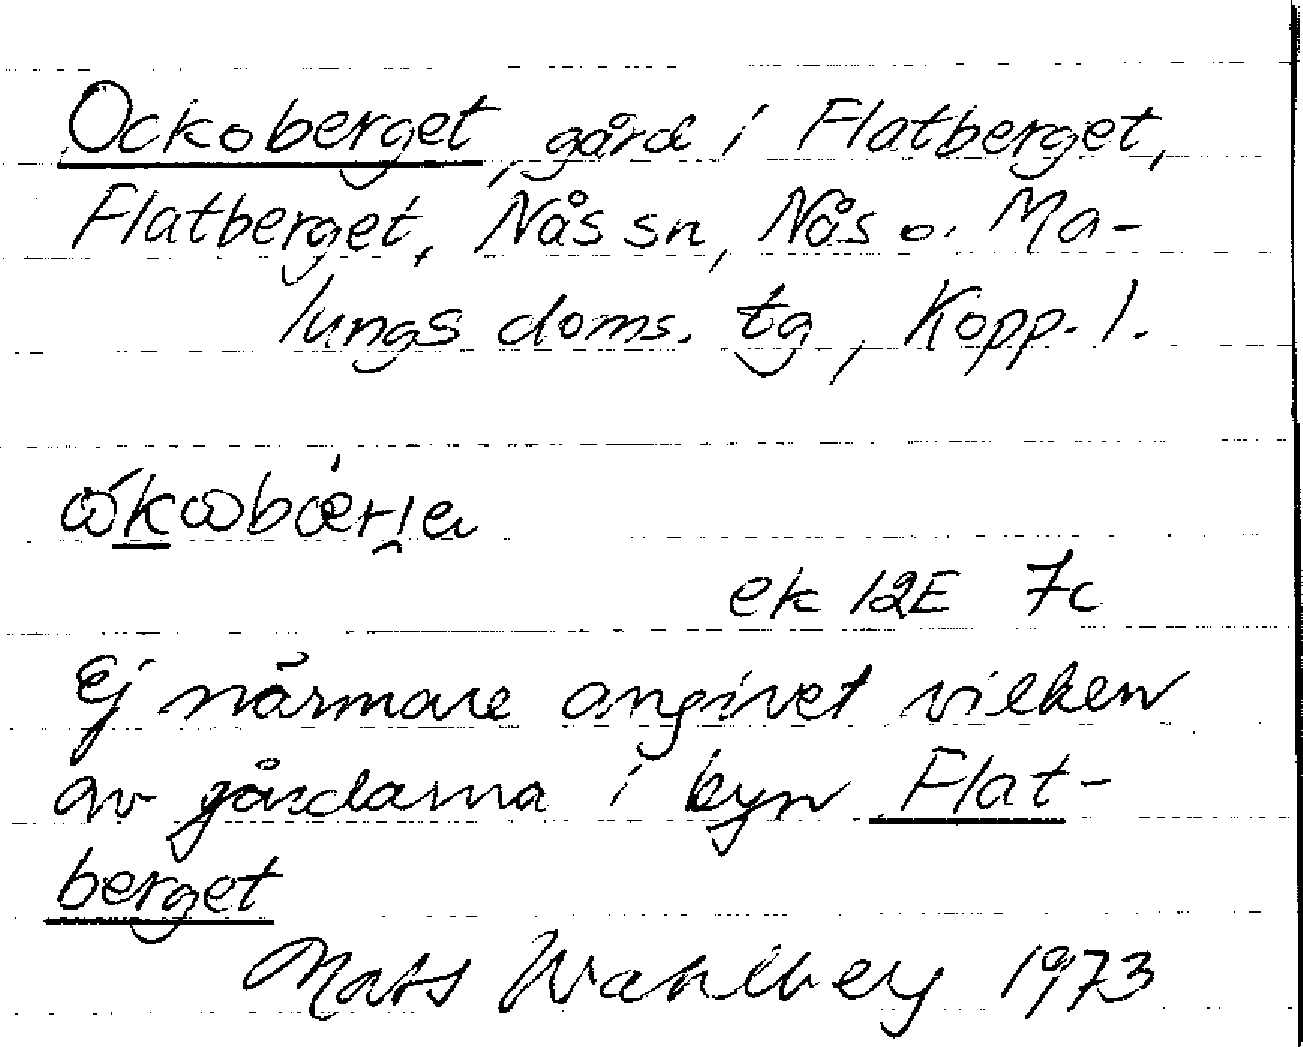 Ockoberget, gård i Flatberget,
Flatberget, Nås sn, Nås o. Ma-
lungs doms. tg, Kopp. l.
ek 12E 7c
Ej närmare angivet vilken
av gårdarna i byn Flat-
berget
Mats Wahlberg 1973